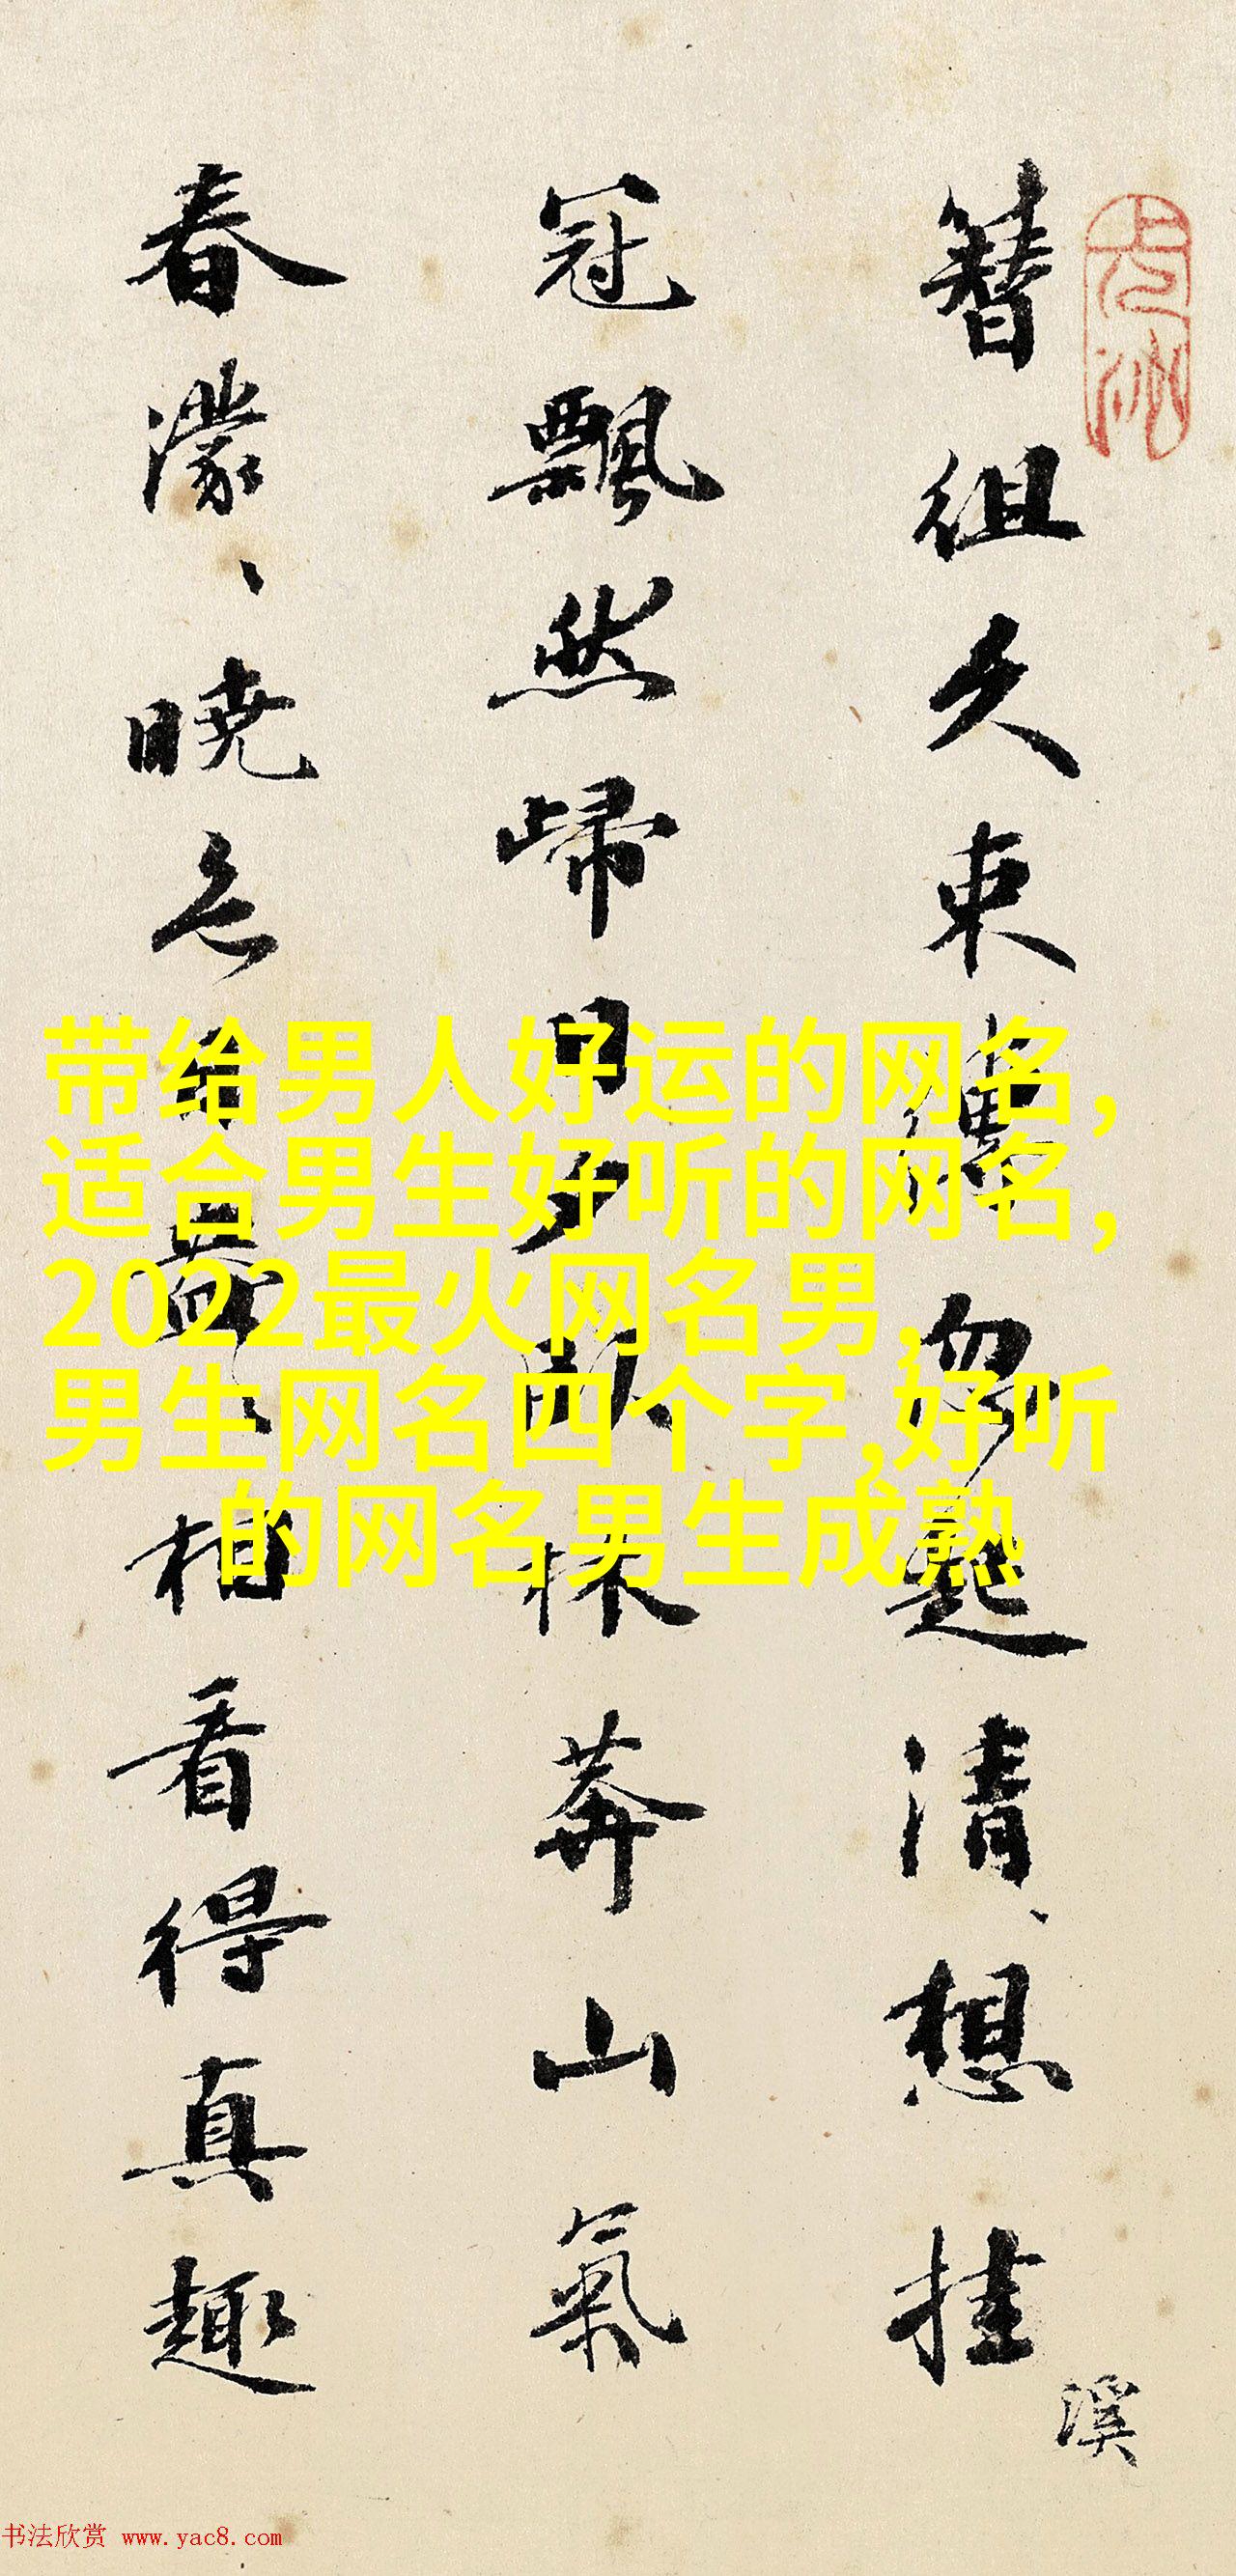 簪組久束縛忽起清、想挂
溪
冠飄然歸日夕臥林莽山氣
春濛、曉色相看得真趣
带给男人好运的网名,
适合男生好听的网名,
2022最火网名男,
男生网名四个字,好听
的网名男生成熟
书法欣赏 www.yac8.com